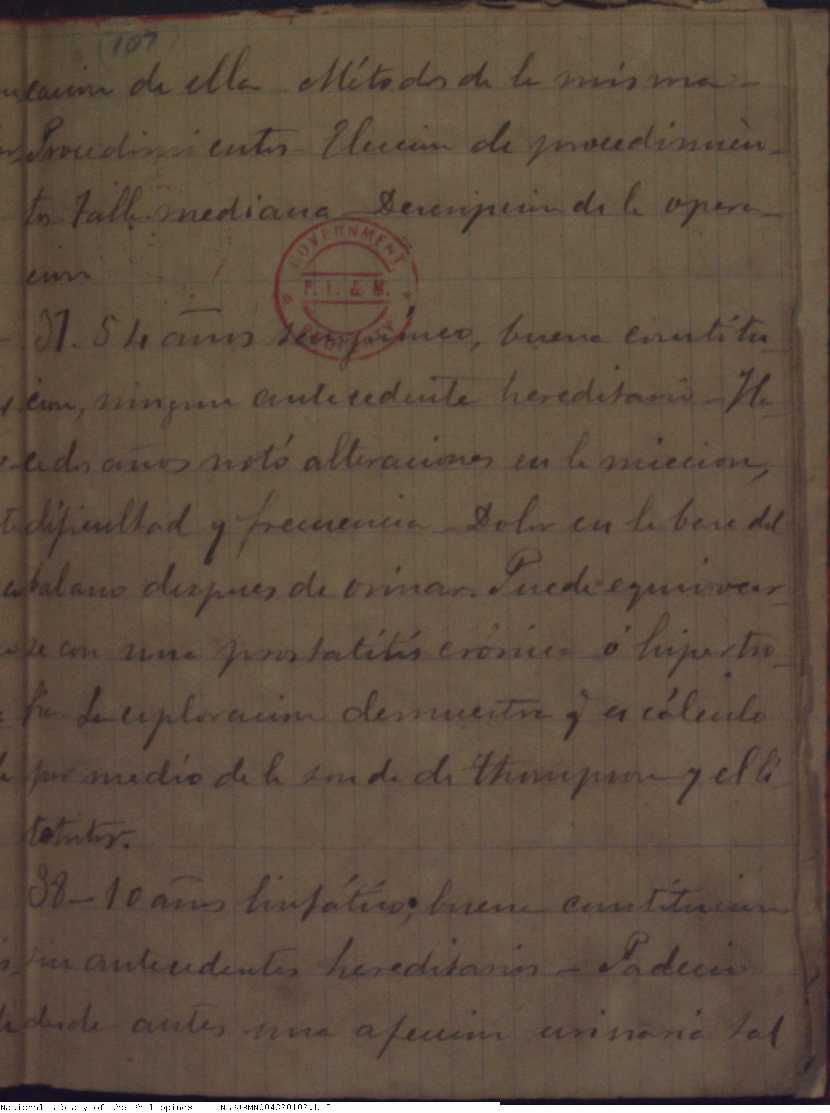 (107)
cacion de ella Métodos de la misma -
Procedimientos - Eleccion de procedimien-
tos Talla mediana - Descripcion de la opera-
cion
GOVERNMENT
P. I. & M.
37. 54 años sanguineo, buena constitu-
cion, ningun antecedente hereditario - Ha-
ce dos años notó alteraciones en la miccion,
dificultad y frecuencia - Dolor en la base del
balano despues de orinar. Puede equivocar-
se con una prostatitis crónica ó hipertro-
fia La exploracion demuestra q̃ es cálculo
por medio de la sonda de Thompson y el li-
totritor.
38 - 10 años linfático, buena constitucion
sin antecedentes hereditarios - Padecio
desde antes una afeccion urinaria tal
National Library of the Philippines